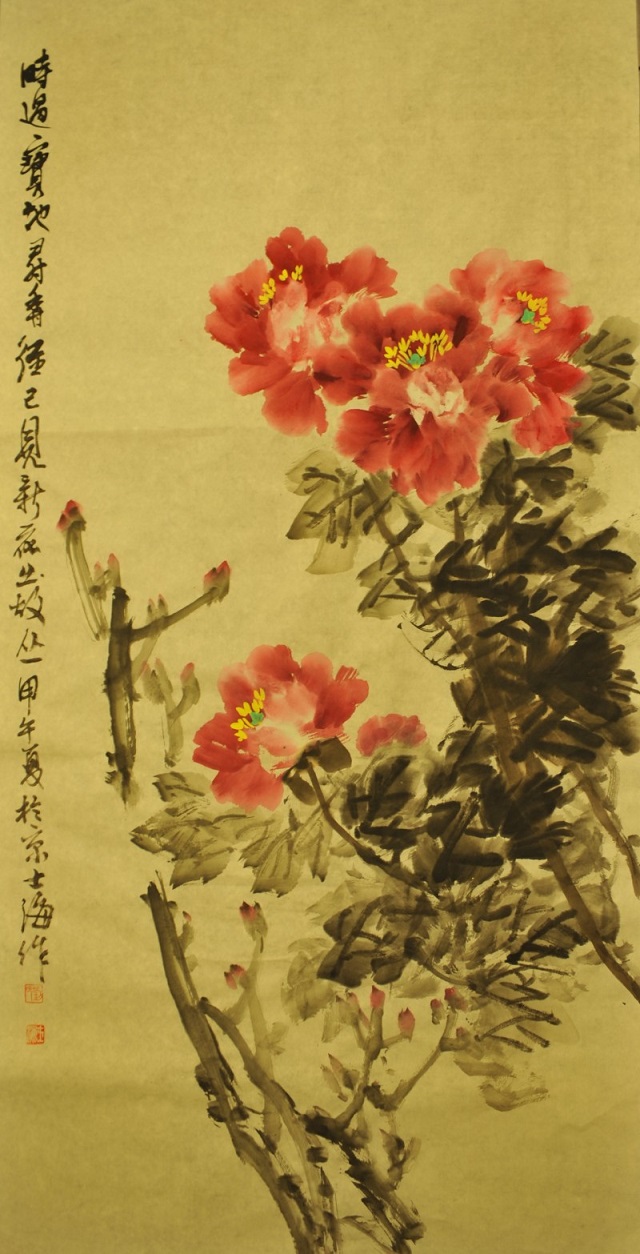 時過寶地尋香徑已見新花出故丛甲午夏於京士海作